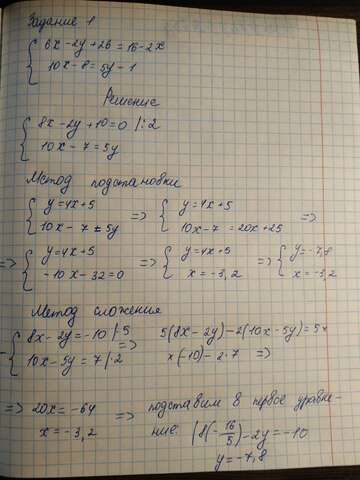 Задание 1
{ 6x - 2y + 26 = 16 - 2x
{ 10x - 8 = 5y - 1
Решение
{ 8x - 2y + 10 = 0 |:2
{ 10x - 7 = 5y
Метод подстановки
{ y = 4x + 5 => { y = 4x + 5 =>
{ 10x - 7 = 5y { 10x - 7 = 20x + 25
=> { y = 4x + 5 => { y = 4x + 5 => { y = -7,8
{ -10x - 32 = 0 { x = -3,2 { x = -3,2
Метод сложения
{ 8x - 2y = -10 |·5 => 5(8x - 2y) - 2(10x - 5y) = 5×
{ 10x - 5y = 7 |·2 ×(-10) - 2·7 =>
=> 20x = -64 => подставим в первое уравне-
x = -3,2 ние: (8(-16/5) - 2y = -10
y = -7,8